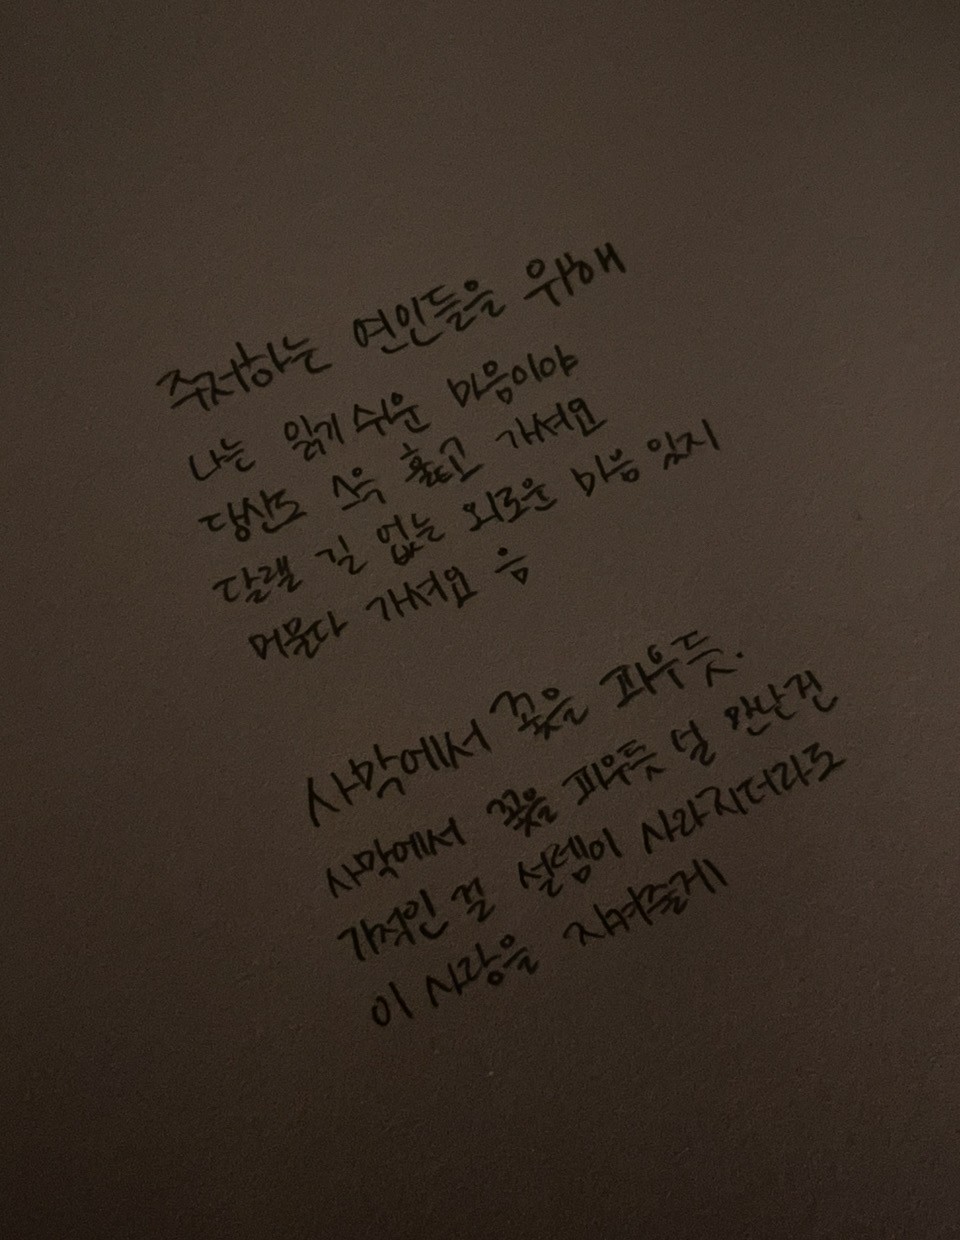 주저하는 연인들을 위해
나는 읽기 쉬운 마음이야
당신도 스윽 훑고 가셔요
달랠 길 없는 외로운 마음 있지
머물다 가셔요 음
사막에서 꽃을 피우듯.
사막에서 꽃을 피우듯 널 만난건
기적인 걸 설렘이 사라지더라도
이 사랑을 지켜줄게